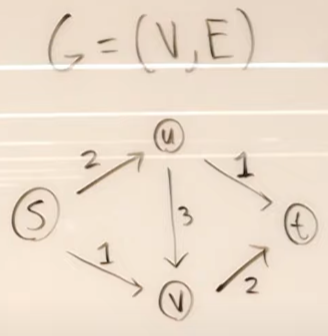 G = (V, E)
u
2
1
S
3
t
1
2
v